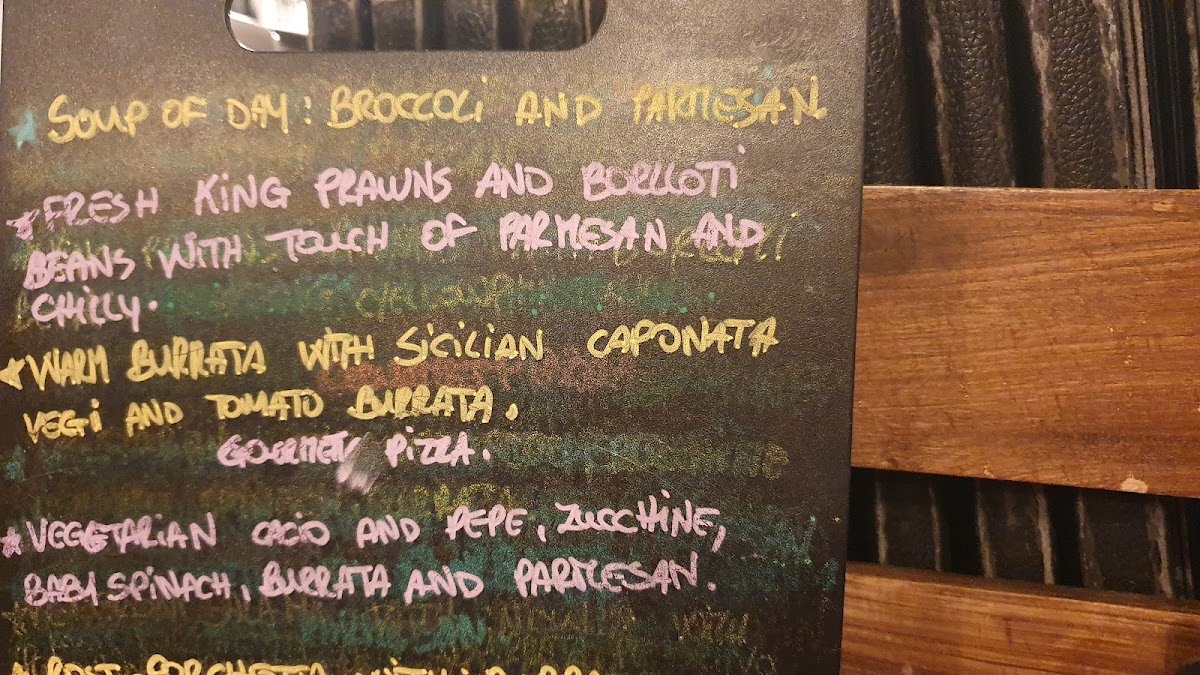 SOUP OF DAY: BROCCOLI AND PARMESAN.
FRESH KING PRAWNS AND BORLLOTI
BEANS WITH TOUCH OF PARMESAN AND
CHILLY.
WARM BURRATA WITH SICILIAN CAPONATA
VEGI AND TOMATO BURRATA.
GOURMET PIZZA.
VEGETARIAN CACIO AND PEPE, ZUCCHINE,
BABY SPINACH, BURRATA AND PARMESAN.
PORCHETTA WITH